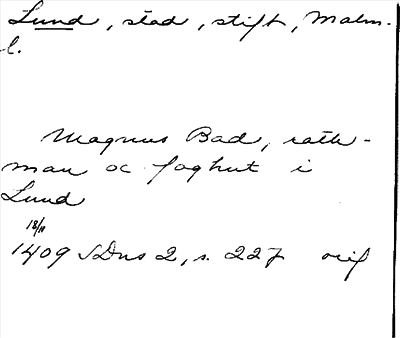 Lund, stad, stift, Malm.
l.
Magnus Bad, rath-
man oc foghut i
Lund
18/11
1409 SDns 2, s. 227 orig